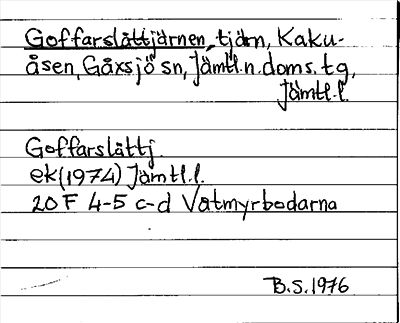 Goffarslåttjärnen, tjärn, Kaku-
åsen, Gåxsjö sn, Jämtl.n.doms.tg,
Jämtl.l.
Goffarslåttj.
ek (1974) Jämtl.l.
20 F 4-5 c-d Våtmyrbodarna
B.S. 1976